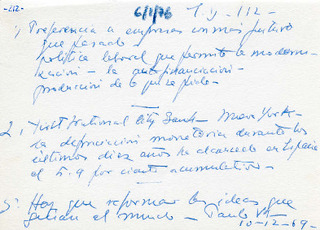 -112- 6/1/76 T. y. - 112 -
1) Preferencia a empresas con más futuro
que pasado -
política laboral que permita la modern-
ización - la autofinanciación -
producción de lo que se pide -
2, First National City Bank - New York -
la depreciación monetaria durante los
últimos diez años ha alcanzado en España
el 5.9 por ciento acumulativo -
3) Hay que reformar las ideas que
guían el mundo - Paulo VI -
10-12-69 -